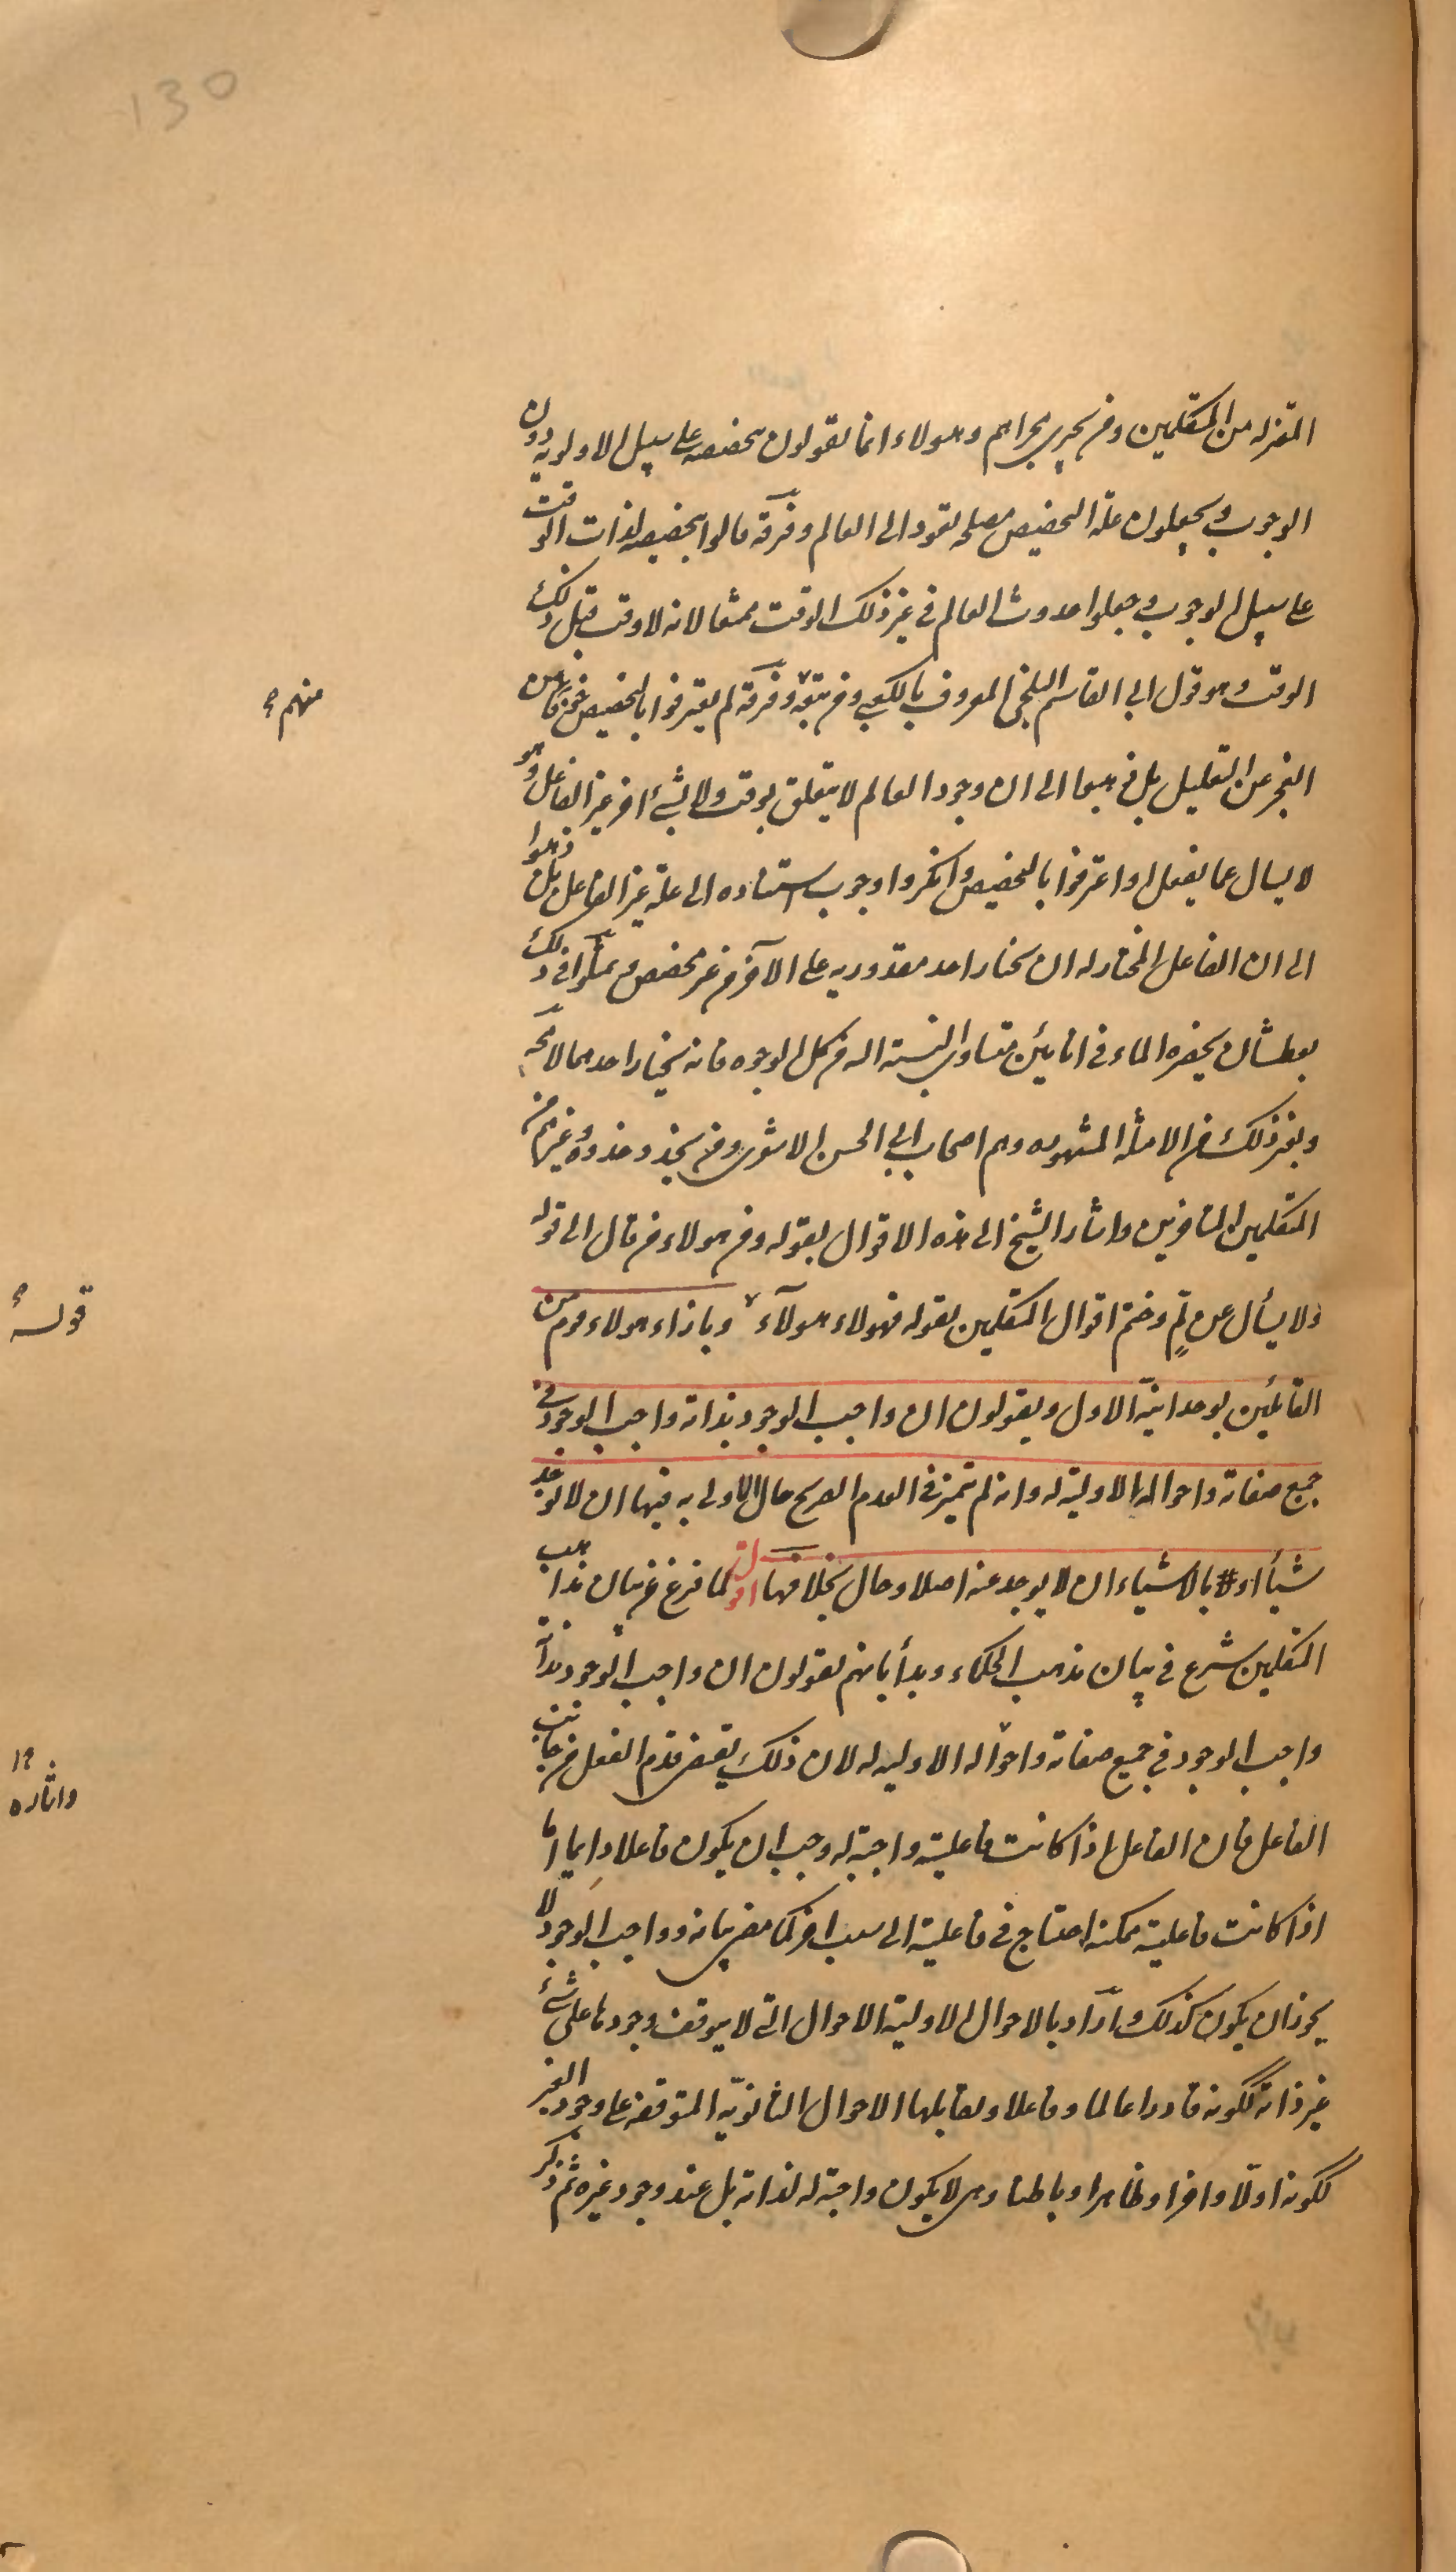 130
المعتزله من المتكلمين ومن يجري مجراهم وهولاء انما يقولون بتخصصه على سبيل الاولويه دون
الوجوب ويجعلون علة التخصيص مصلحه تعود الى العالم وفرقة قالوا بتخصيصه لذات الوقت
على سبيل الوجوب وجعلوا حدوث العالم في غير ذلك الوقت ممتنعا لانه لا وقت قبل ذلك
الوقت وهو قول ابي القاسم البلخي المعروف بالكعبي ومن تبعه وفرقة لم يعترفوا بالتخصيص خوفا من
منهم
العجز عن التعليل بل ذهبوا الى ان وجود العالم لا يتعلق بوقت ولا بشئ اخر غير الفاعل وهو
لا يسال عما يفعل او اعترفوا بالتخصيص وانكروا وجوب استناده الى علة غير الفاعل بل ذهبوا
الى ان الفاعل المختار له ان يختار احد مقدوريه على الآخر من غير مخصص وتمثلوا في ذلك
بعطشان يحضره الماء في انائين متساوي النسبة اليه من كل الوجوه فانه يختار احدهما لا محة
وبغير ذلك من الامثلة المشهوره وهم اصحاب ابي الحسن الاشعري ومن يحذو حذوه وغيرهم من
المتكلمين المتاخرين واشار الشيخ الى هذه الاقوال بقوله ومن هولاء من قال الى قوله
ولا يسأل عن لم وختم اقوال المتكلمين بقوله فهولاء هولآء وبازاء هولاء قوم من
قوله
القائلين بوحدانية الاول ويقولون ان واجب الوجود بذاته واجب الوجود في
جميع صفاته واحواله الاولية له وانه لم يتميز في العدم الصريح حال الاولى به فيها ان لا يوجد
شيأ او # بالاشياء ان لا يوجد عنه اصلا وحال بخلافها اقول لما فرغ من بيان مذاهب
المتكلمين شرع في بيان مذهب الحكماء وبدأ بانهم يقولون ان واجب الوجود بذاته
واجب الوجود في جميع صفاته واحواله الاوليه له لان ذلك يقتضى قدم الفعل من جانب
الفاعل فان الفاعل اذا كانت فاعليته واجبة له وجب ان يكون فاعلا دايما اما
اذا كانت فاعليته ممكنه احتاج في فاعليته الى سبب اخر كما مضى بيانه وواجب الوجود لا
يجوز ان يكون كذلك واراد بالاحوال الاولية الاحوال التي لا يتوقف وجودها على شئ
غير ذاته ككونه قادرا عالما وفاعلا ويقابلها الاحوال الثانويّه المتوقفه على وجود الغير
ككونه اولا واخرا وظاهرا وباطنا وهى لا يكون واجبة له لذاته بل عند وجود غيره ثم ذكر